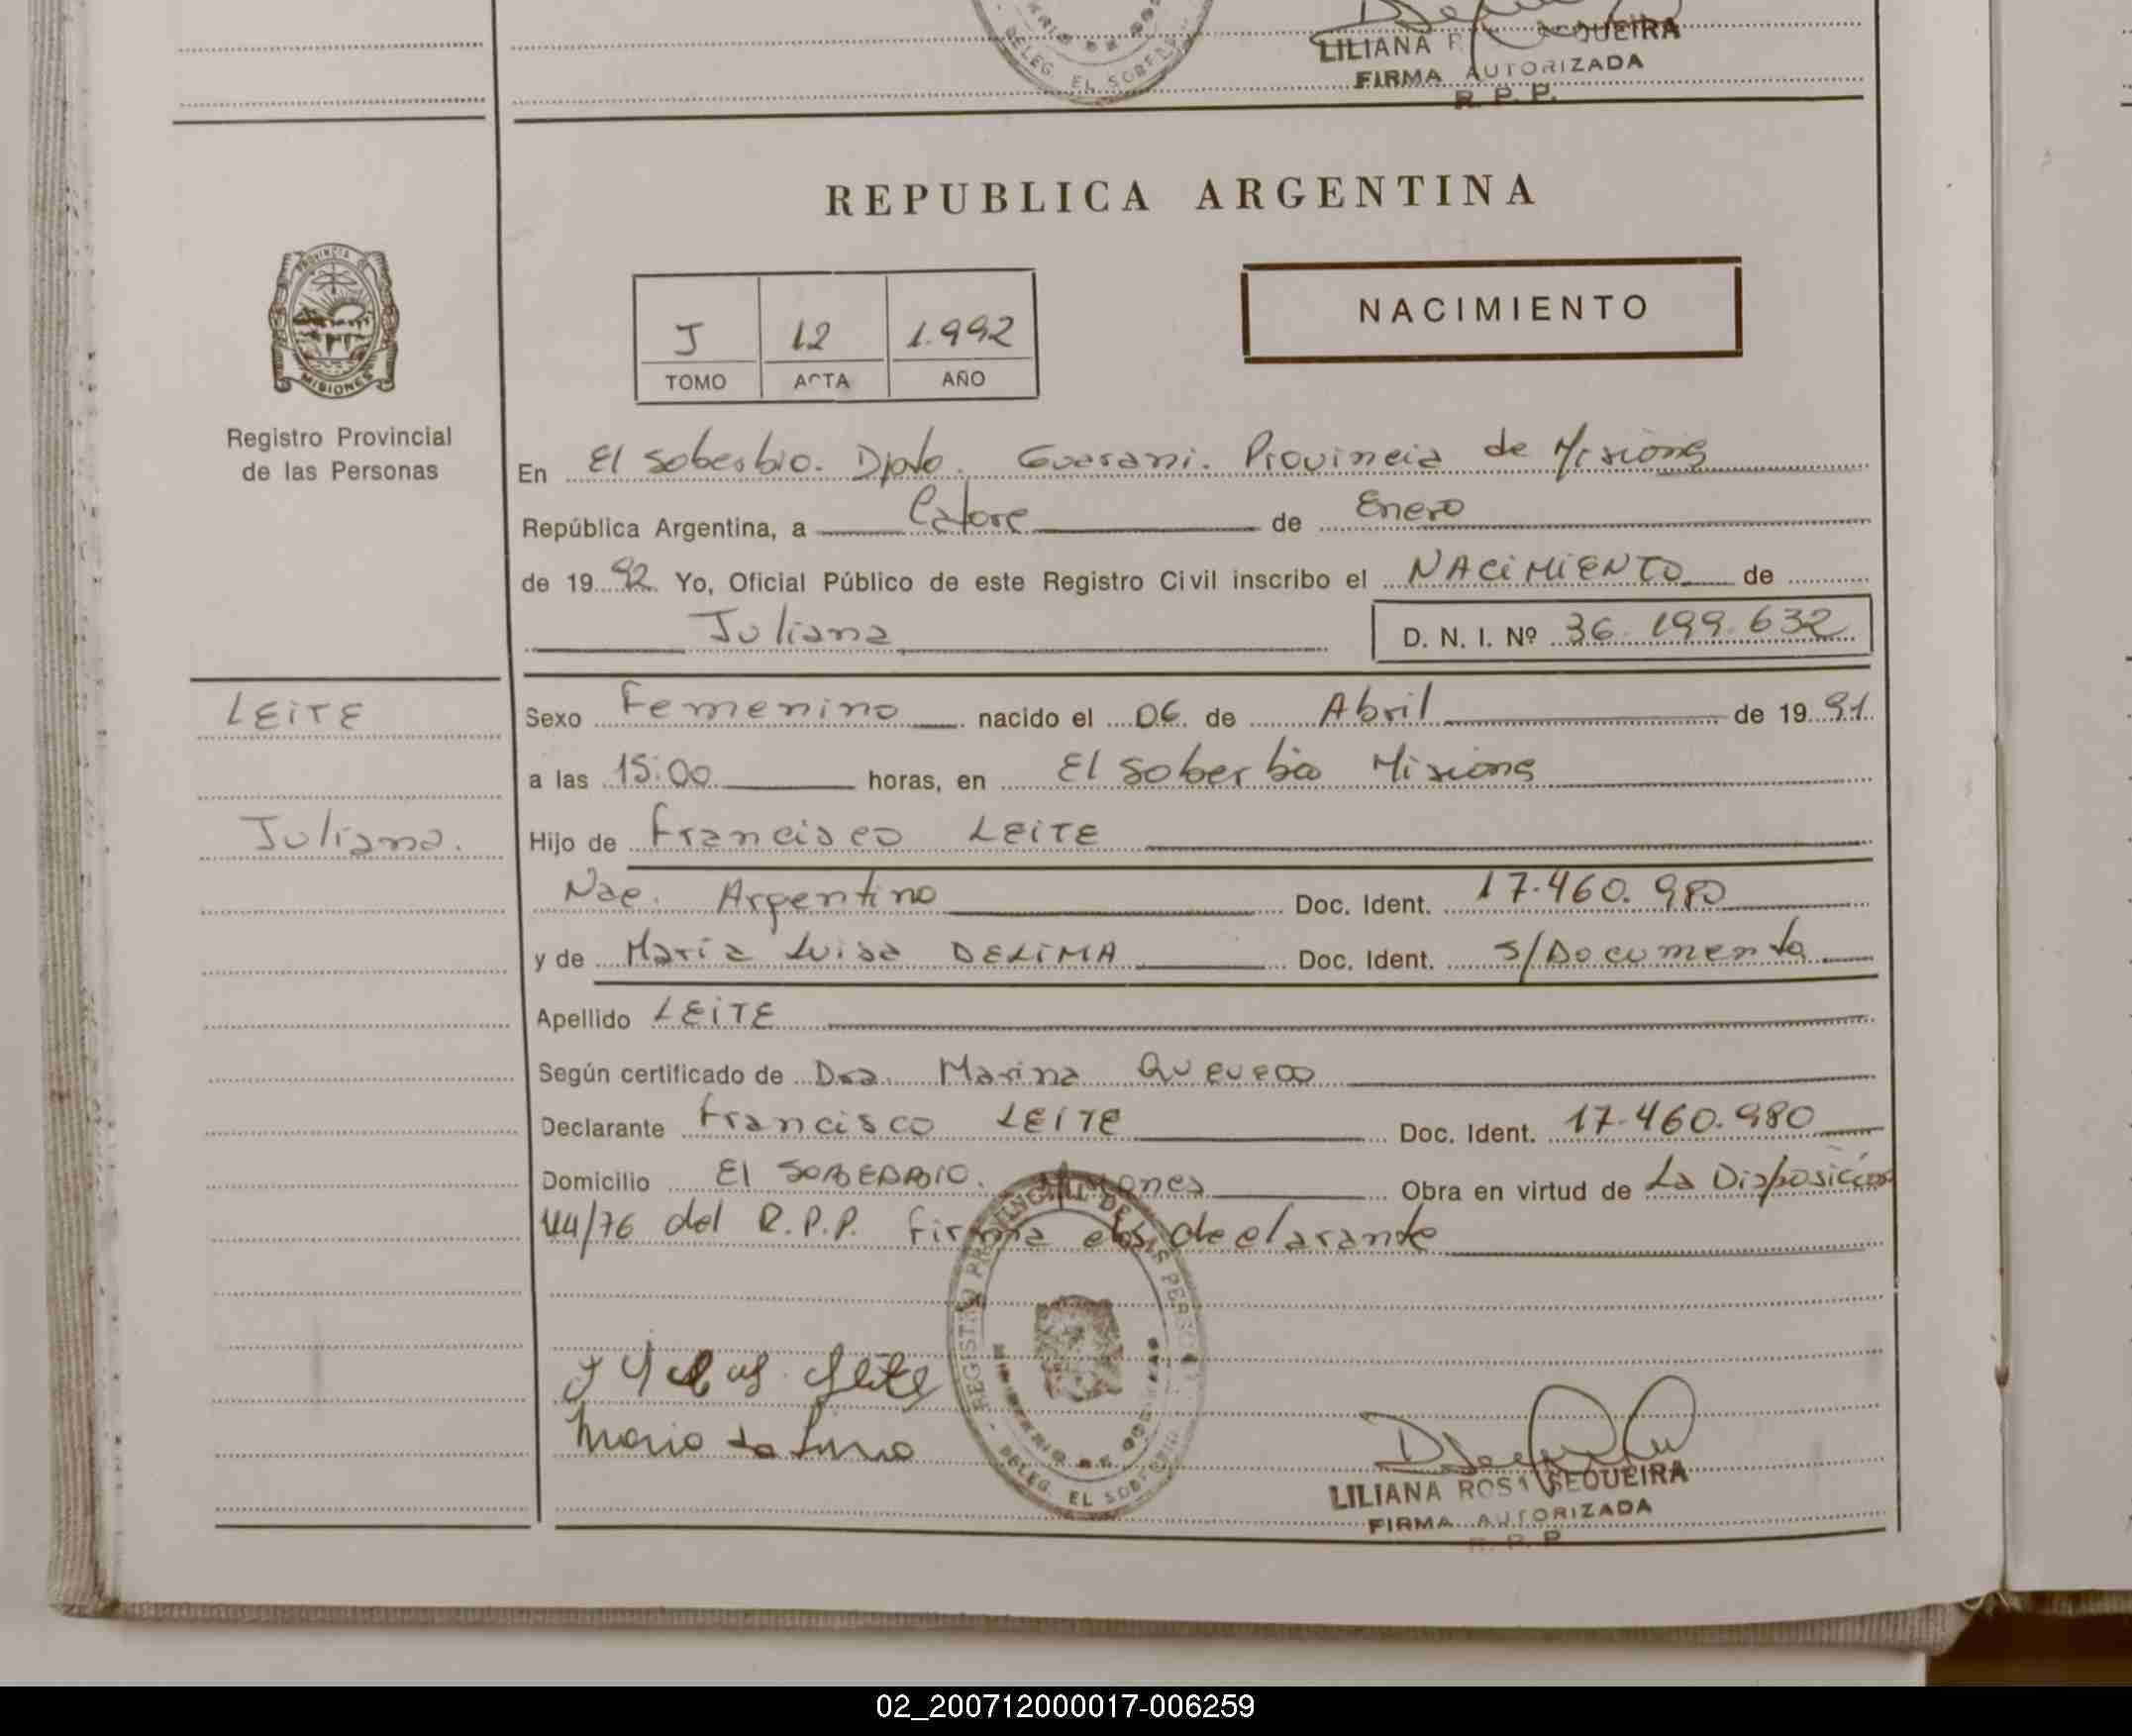 DELEG. EL SOBERBIO
LILIANA R SEQUEIRA
FIRMA AUTORIZADA
R. P. P.
REPUBLICA ARGENTINA
PROVINCIA DE
MISIONES
Registro Provincial
de las Personas
J 12 1.992
TOMO ACTA AÑO
NACIMIENTO
En El Soberbio. Dpto. Guarani. Provincia de Misiones
República Argentina, a Catorce de Enero
de 19 92 Yo, Oficial Público de este Registro Civil inscribo el NACIMIENTO de
Juliana D. N. I. Nº 36.199.632
LEITE
Juliana.
Sexo Femenino nacido el 06 de Abril de 19 91
a las 15:00 horas, en El Soberbio Misiones
Hijo de Francisco LEITE
Nac. Argentino Doc. Ident. 17.460.980
y de Maria Luisa DELIMA Doc. Ident. S/Documento
Apellido LEITE
Según certificado de Dra. Marina QUEVEDO
Declarante Francisco LEITE Doc. Ident. 17.460.980
Domicilio El SOBERBIO. Misiones Obra en virtud de La Disposición
44/76 del R.P.P. Firma declarante
REGISTRO PROVINCIAL DE LAS PERSONAS
MINISTERIO DE GOBIERNO
DELEG. EL SOBERBIO
Leite
Maria de Lima
LILIANA ROSA SEQUEIRA
FIRMA AUTORIZADA
R. P. P.
02_200712000017-006259